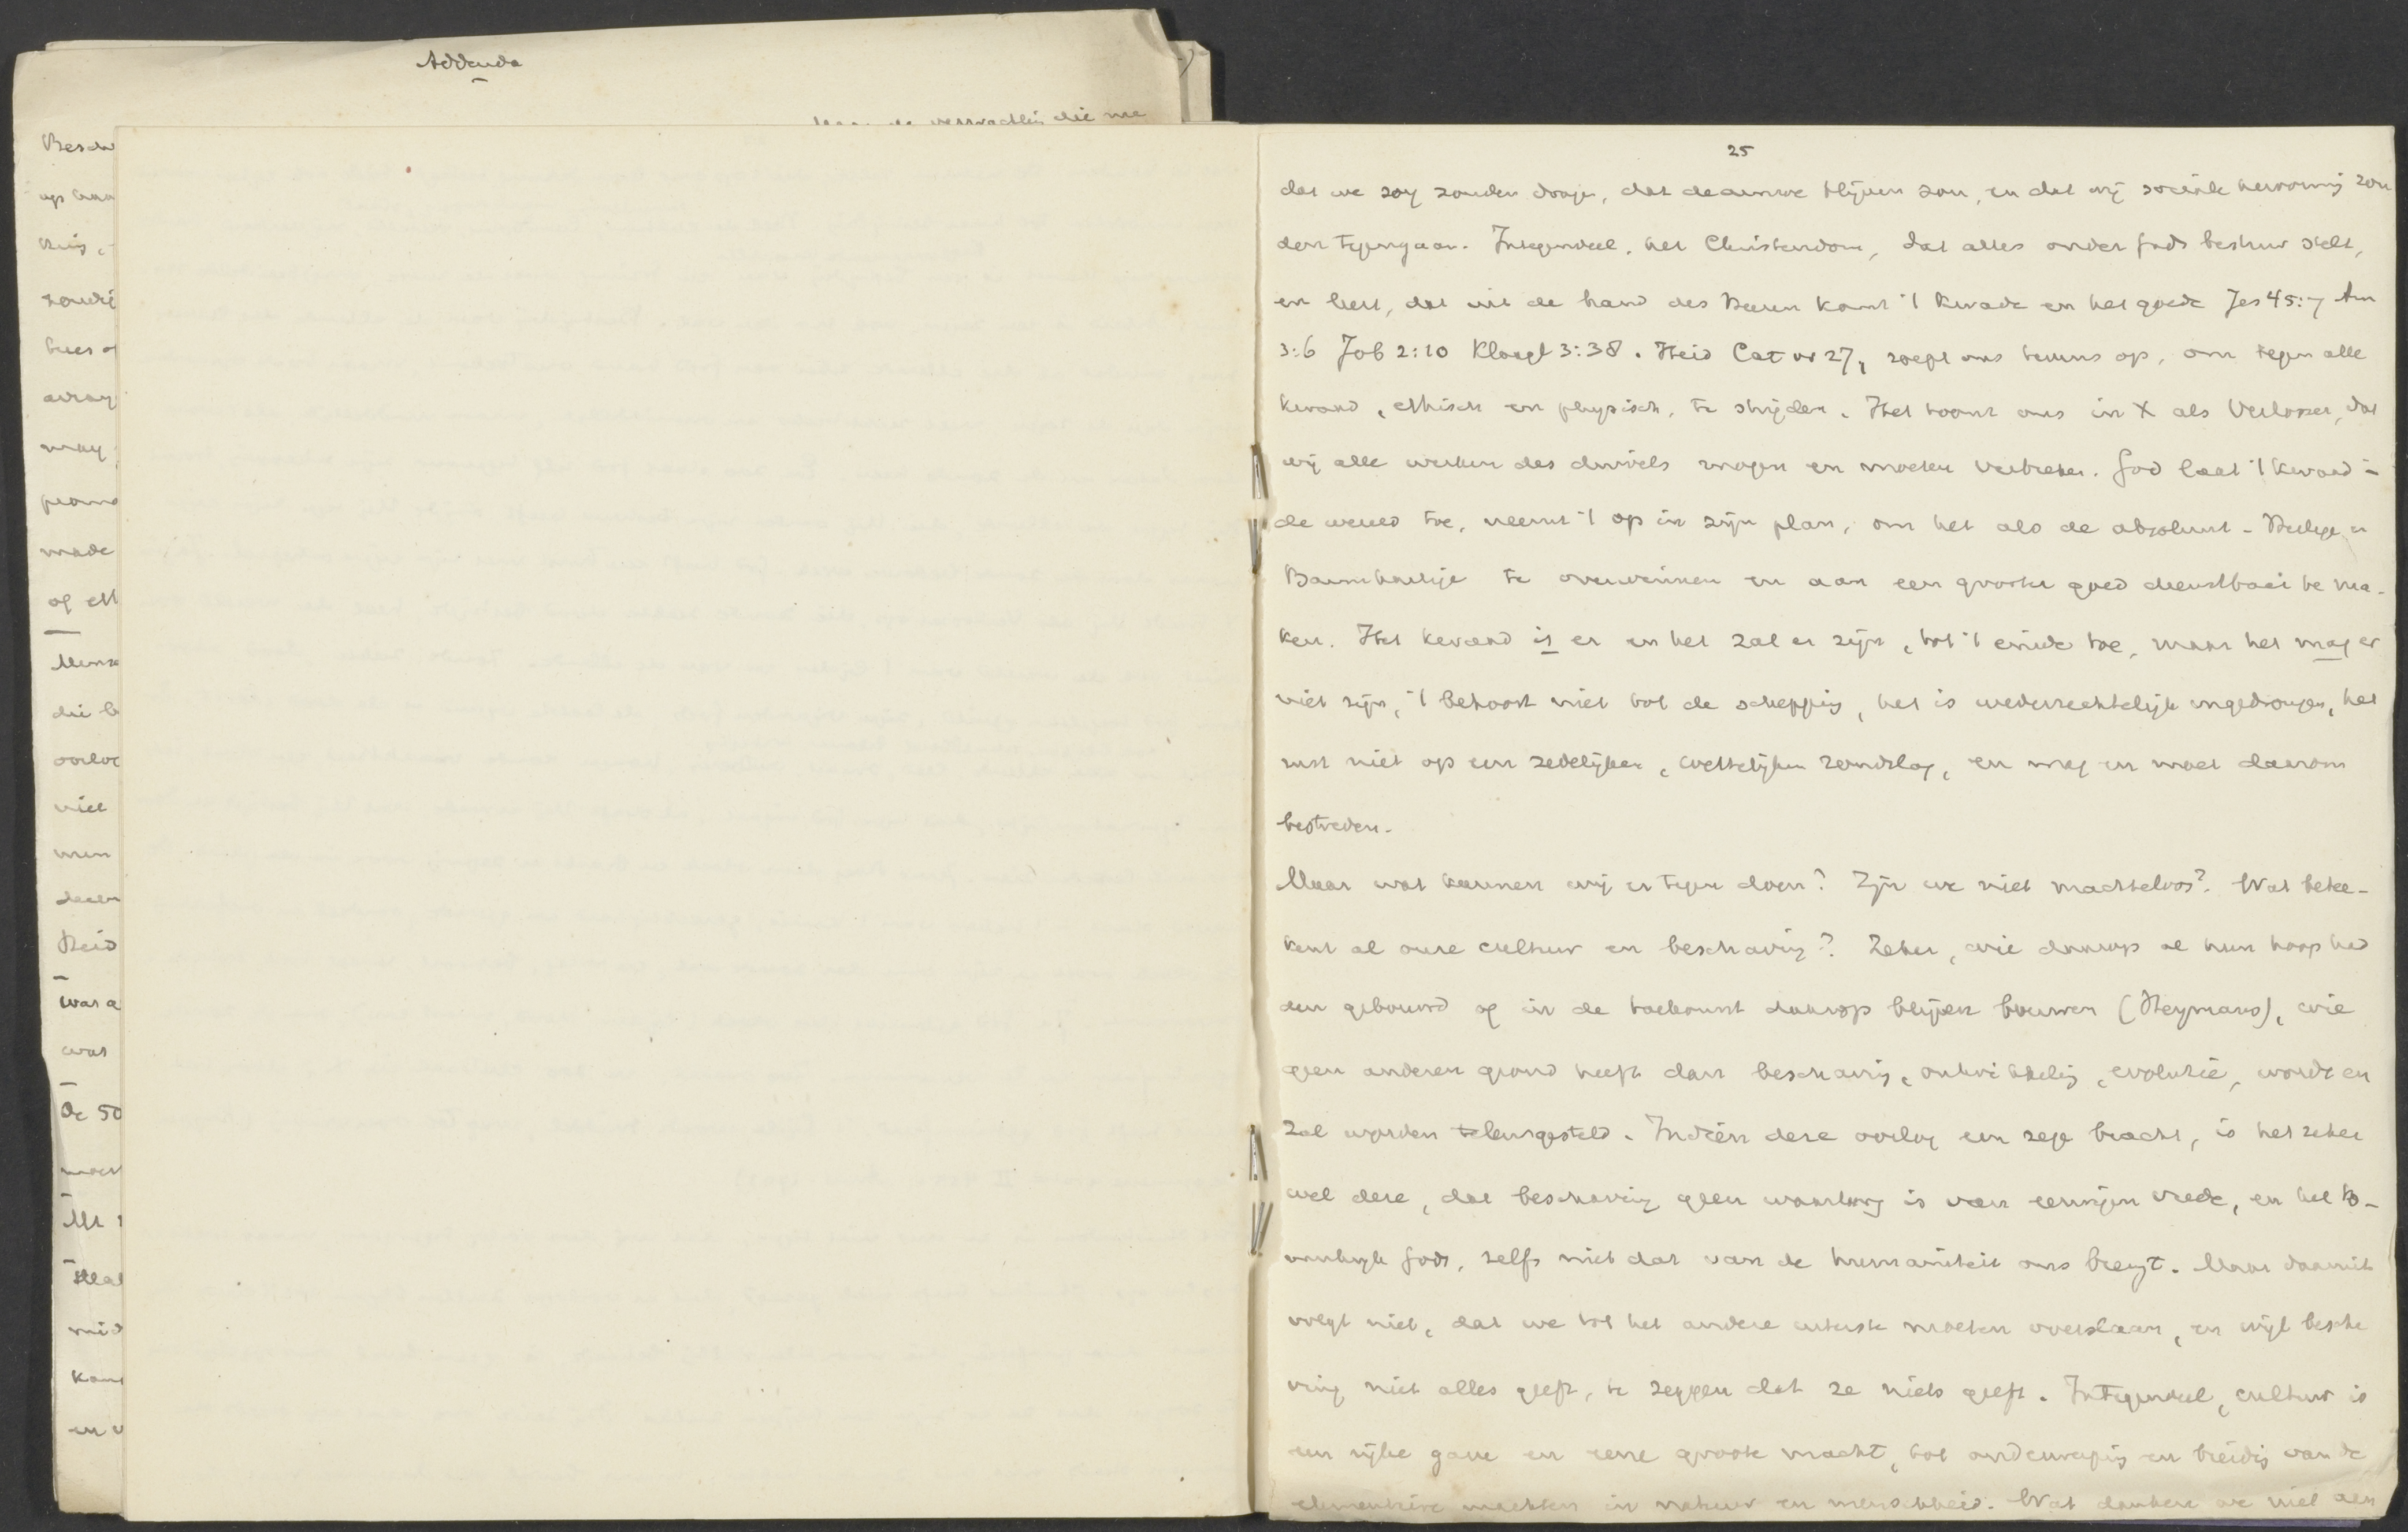 Addenda
de verwachting die me
25
dat we zorg zouden dragen, dat de armoe blijven zou, en dat wij sociale hervorming zou
den tegengaan. Integendeel, het Christendom, dat alles onder Gods bestuur stelt,
en leert, dat uit de hand des Heeren komt 't kwade en het goede Jes 45:7 Am
3:6 Job 2:10 Klaagl 3:38. Heid Cat vr 27, roept ons tevens op, om tegen alle
kwaad, ethisch en physisch, te strijden. Het toont ons in X als Verlosser, dat
wij alle werken des duivels mogen en moeten verbreken. God laat 't kwaad in
de wereld toe, neemt 't op in zijn plan, om het als de absoluut-Heilige en
Barmhartige te overwinnen en aan een grooter goed dienstbaar te ma-
ken. Het kwaad is er en het zal er zijn, tot 't einde toe, maar het mag er
niet zijn, 't behoort niet tot de schepping, het is wederrechtelijk ingedrongen, het
rust niet op een zedelijken, wettelijken grondslag, en mag en moet daarom
bestreden.
Maar wat kunnen wij er tegen doen? Zijn we niet machteloos? Wat betee-
kent al onze cultuur en beschaving? Zeker, wie daarop al hun hoop had
den gebouwd of in de toekomst daarop blijven bouwen (Heymans), wie
geen anderen grond heeft dan beschaving, ontwikkeling, evolutie, wordt en
zal worden teleurgesteld. Indien deze oorlog een zege bracht, is het zeker
wel deze, dat beschaving geen waarborg is van eeuwigen vrede, en het Ko-
ninkrijk Gods, zelfs niet dat van de humaniteit ons brengt. Maar daaruit
volgt niet, dat we tot het andere uiterste moeten overslaan, en wijl bescha
ving niet alles geeft, te zeggen dat ze niets geeft. Integendeel, cultuur is
een rijke gave en eene groote macht, tot onderwerping en breidig van de
elementaire machten in natuur en menschheid. Wat danken we niet aan
Besch
op
zoudt
mag
made
of eth
Mensch
die b
oorlog
niet
men
Heid
was a
was
De 50
moet
mid
kan
en v